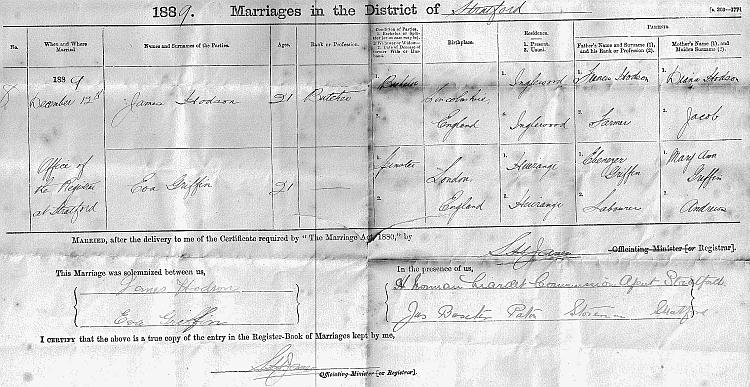 1889. Marriages in the District of Stratford
No. When and Where Married Names and Surnames of the Parties. Ages. Rank or Profession. Birthplace. Residence. 1. Present. 2. Usual. PARENTS. Father's Name and Surname (1), and his Rank or Profession (2). Mother's Name (1), and Maiden Surname (2).
1889
December 12th James Hodson 21 Butcher 1. Bachelor Lincolnshire England 1. Inglewood 2. Inglewood 1. Hodson 2. Farmer 1. Hodson 2. Jacob
Office of the Registrar at Stratford Eva Griffin 21 1. Spinster London England 1. Hurange 2. Hurange 1. Ebenezer Griffin 2. Labourer 1. Mary Ann Griffin 2. Andrews
MARRIED, after the delivery to me of the Certificate required by "The Marriage Act, 1880," by
Officiating Minister [or Registrar].
This Marriage was solemnized between us,
James Hodson
Eva Griffin
In the presence of us,
Norman Liardet Commission Agent Stratford
Jas Stratford
I CERTIFY that the above is a true copy of the entry in the Register-Book of Marriages kept by me,
Officiating Minister [or Registrar].